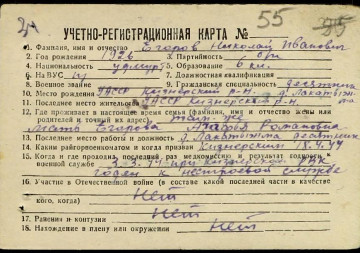 55
УЧЕТНО-РЕГИСТРАЦИОННАЯ КАРТА №
1. Фамилия, имя и отчество Егоров Николай Иванович
2. Год рождения 1926 3. Партийность б/п
4. Национальность удмурт 5. Образование 6 кл.
6. № ВУС 7. Должностная квалификация
8. Военное звание 9. Гражданская специальность десятник
10. Место рождения УАССР Кизнерский р-н
11. Последнее место жительства УАССР Кизнерский р-н
12. Где проживает в настоящее время семья (фамилия, имя и отчество жены или
родителей и точный их адрес) там же
мать Егорова Романовна
13. Последнее место работы и должность десятник
14. Каким райгорвоенкоматом и когда призван Кизнерский 18.4.44
15. Когда и где проходил последний раз медкомиссию и результат годности к
военной службе 3.3.44 при Кизнерском РВК
годен к нестроевой службе
16. Участие в Отечественной войне (в составе какой последней части и качестве
кого, когда) Нет
17. Ранения и контузии Нет
18. Нахождение в плену или окружении Нет